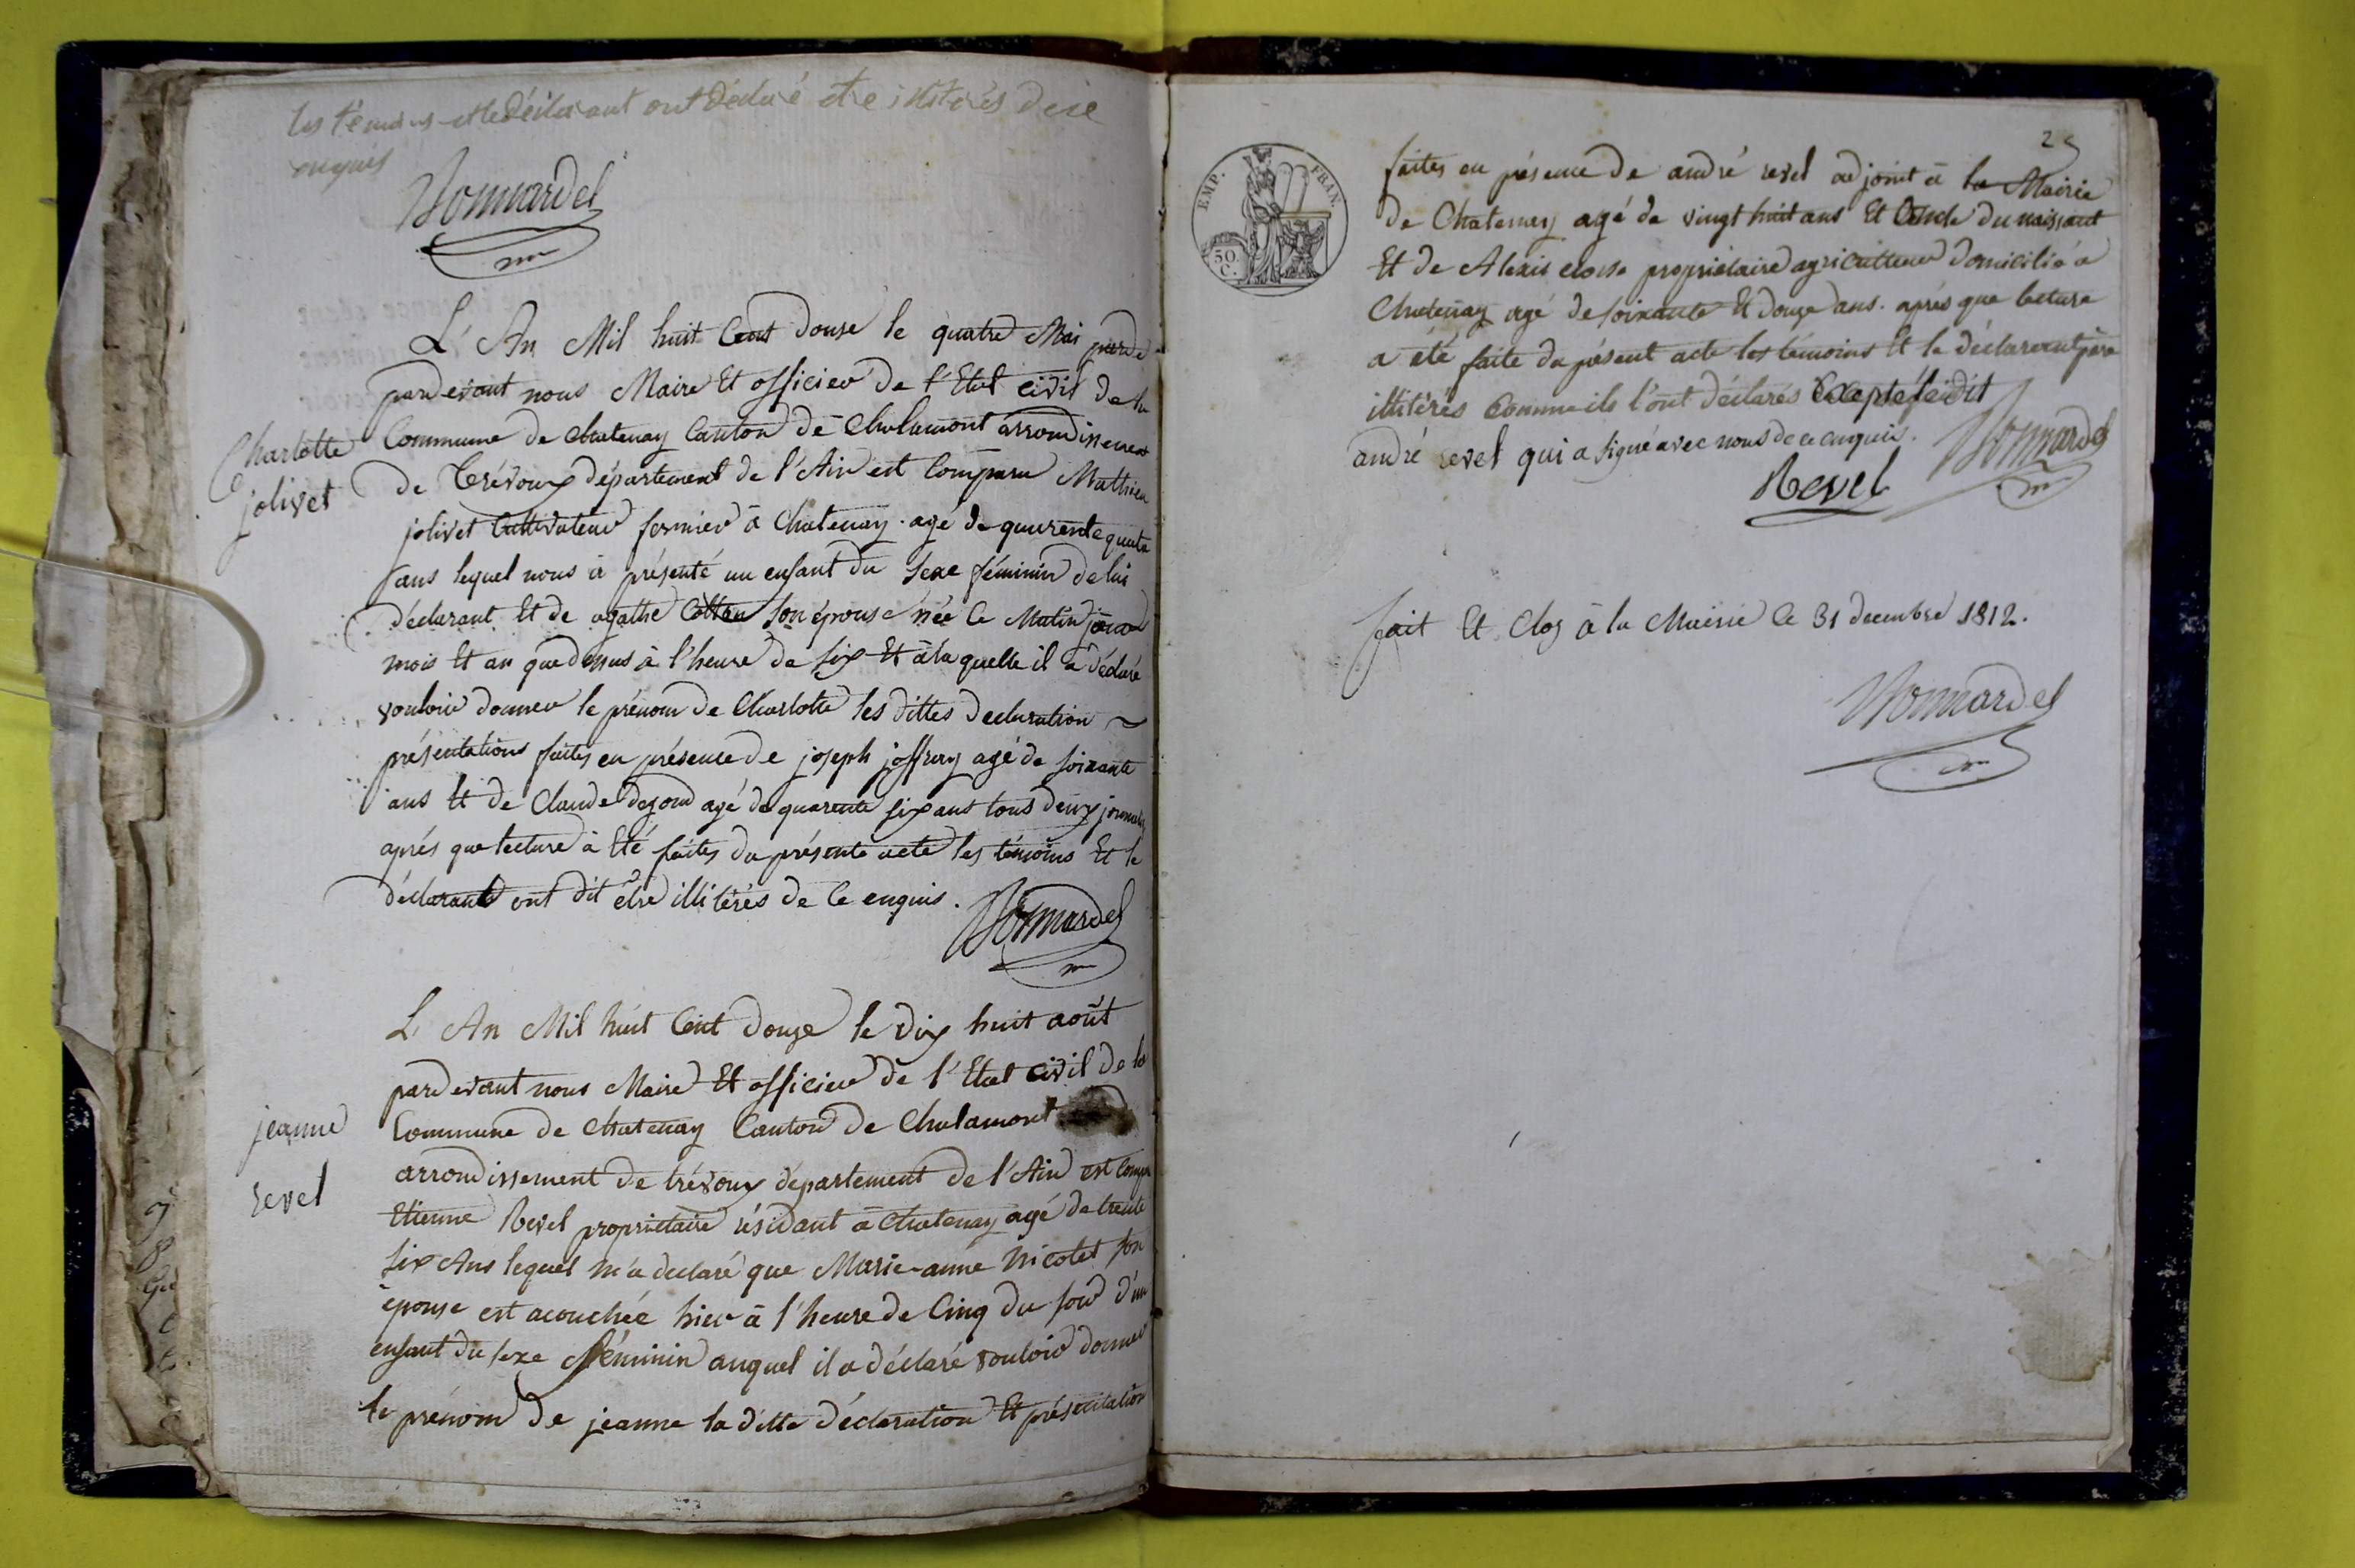 les témoins et le déclarant ont déclaré etre illiterés de ce
enquis
Nomardel
L'An Mil huit Cent douse le quatre Mai
pardevant nous Maire Et officier de l'Etat civil de la
Charlotte
jolivet
Commune de Chatenay Canton de Chalamont arrondissement
de Trévoux département de l'Ain est Comparu Mathieu
jolivet Cultivateur fermier à Chatenay. agé de quarente quatre
ans lequel nous à présenté un enfant du sexe féminin de lui
déclarant Et de agathe son épouse née le Matin jour
mois Et an que dessus à l'heure de six Et à la quelle il a déclaré
vouloir donner le prénom de Charlotte les dittes declaration ~
présentations faites en présence de joseph joffray agé de soixante
ans Et de Claude agé de quarente six ans tous deux
aprés que lecture à Eté faites du présente acte les témoins Et le
déclarant ont dit être illiterés de Ce enquis.
Nomardel
L'An Mil huit Cent douze le dix huit août
pardevant nous Maire Et officier de l'Etat civil de la
jeanne
revel
Commune de Chatenay Canton de Chalamont
arrondissement de trévoux département de l'Ain est
Etienne Revel propriétaire résidant à Chatenay agé de trente
six Ans lequel m'a declaré que Marie-anne Nicolet son
épouse est acouchée hier à l'heure de Cinq du soir d'un
enfant du sexe féminin auquel il a déclaré vouloir donner
le prénom de jeanne la ditte déclaration Et présentation
25
EMP. FRAN.
50.
C.
faites en présence de andré revel adjoint à la Mairie
de Chatenay agé de vingt huit ans Et du naissant
Et de Alexis propriétaire agriculteur domicilié à
Chatenay agé de soixante Et douze ans. aprés que lecture
a été faite du présent acte les témoins Et le déclarant père
illitérés Comme ils l'ont déclarés Excepté ledit
andré revel qui a signé avec nous de ce enquis.
Revel
Nomardel
fait Et Clos à la Mairie le 31 decembre 1812.
Nomardel